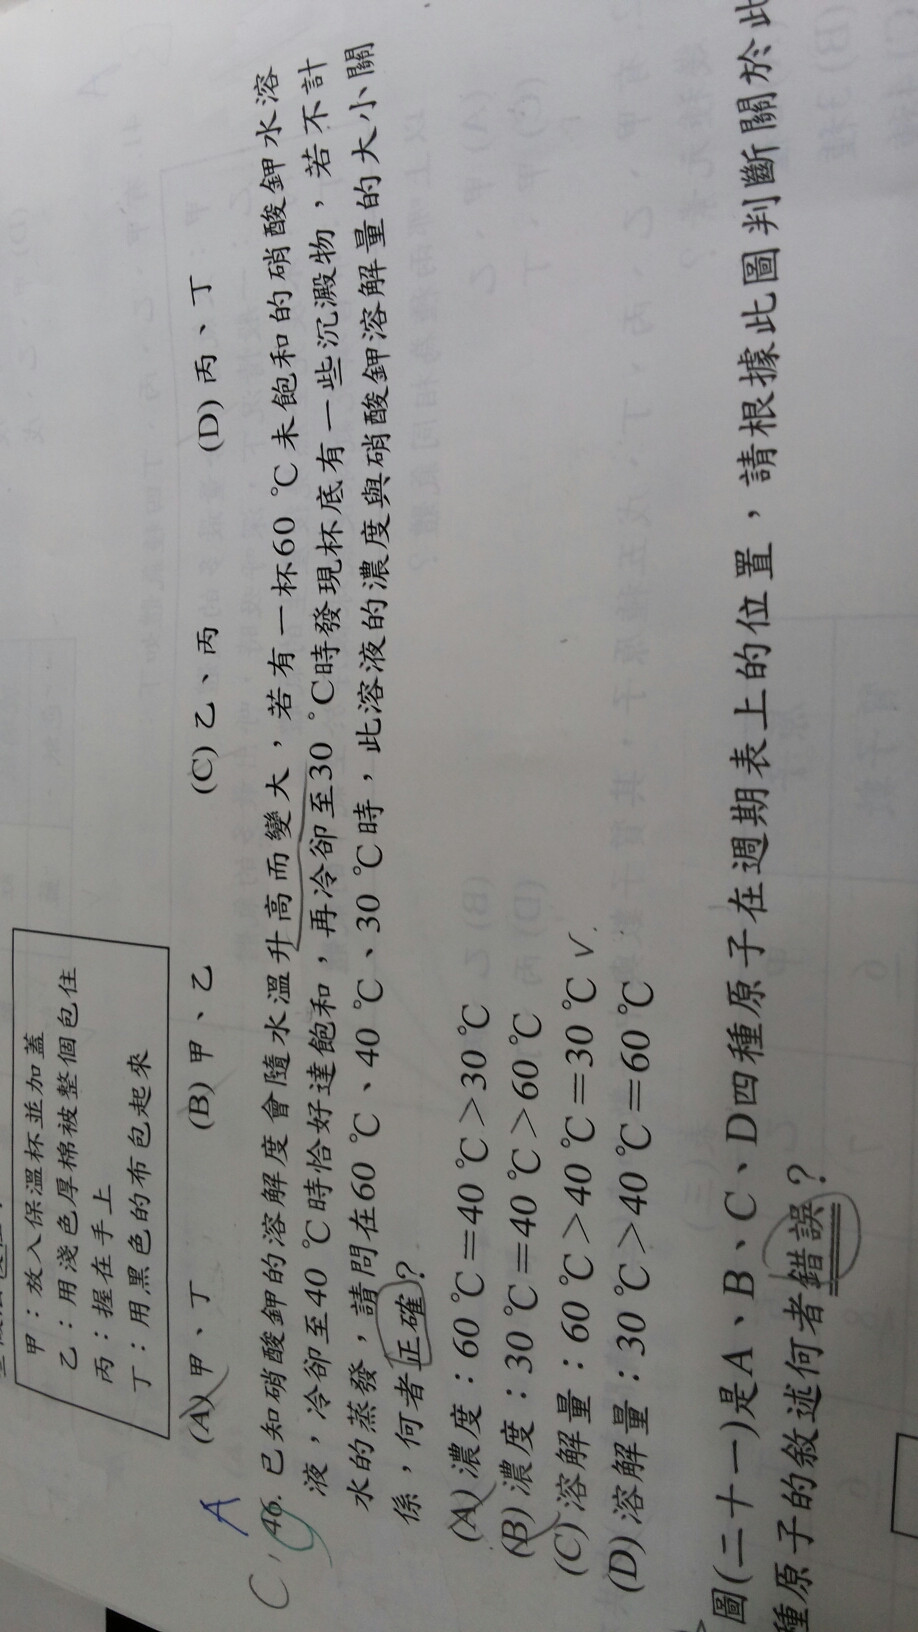 甲：放入保溫杯並加蓋
乙：用淺色厚棉被整個包住
丙：握在手上
丁：用黑色的布包起來
(A)甲、丁 (B)甲、乙 (C)乙、丙 (D)丙、丁
A
C,
46. 已知硝酸鉀的溶解度會隨水溫升高而變大，若有一杯60 ℃未飽和的硝酸鉀水溶
液，冷卻至40 ℃時恰好達飽和，再冷卻至30 °C時發現杯底有一些沉澱物，若不計
水的蒸發，請問在60 ℃、40 ℃、30 ℃時，此溶液的濃度與硝酸鉀溶解量的大小關
係，何者正確？
(A)濃度：60 ℃＝40 ℃＞30 ℃
(B)濃度：30 ℃＝40 ℃＞60 ℃
(C)溶解量：60 ℃＞40 ℃＝30 ℃ ✓
(D)溶解量：30 ℃＞40 ℃＝60 ℃
圖(二十一)是A、B、C、D四種原子在週期表上的位置，請根據此圖判斷關於此
種原子的敘述何者錯誤？